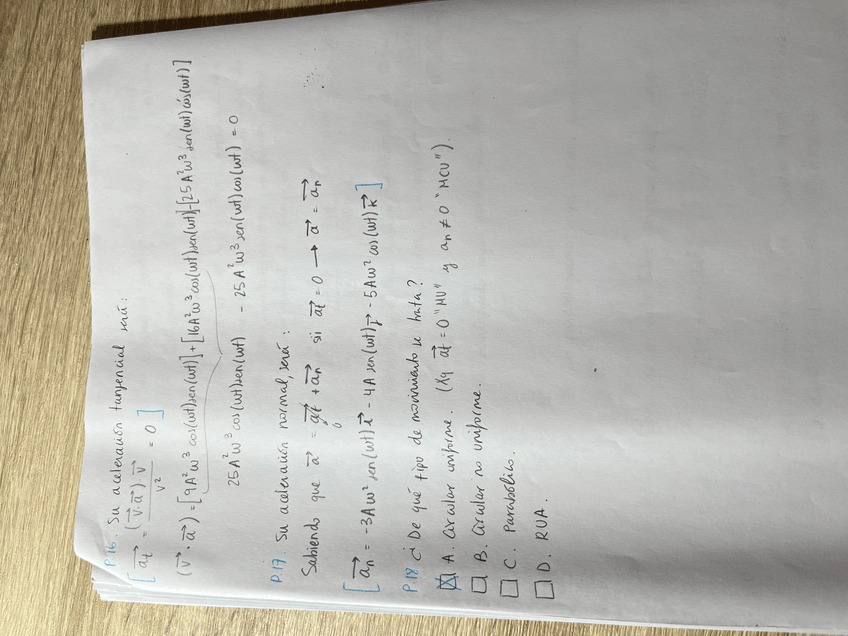 P.16. Su aceleración tangencial será:
[ \vec{a_t} = \frac{(\vec{v}·\vec{a})·\vec{v}}{v^2} = 0 ]
(\vec{v}·\vec{a}) = [9A²w³ cos(wt)sen(wt)] + [16A²w³cos(wt)sen(wt)]-[25A²w³sen(wt)cos(wt)]
25A²w³cos(wt)sen(wt) - 25A²w³sen(wt)cos(wt) = 0
P.17. Su aceleración normal, será:
Sabiendo que \vec{a} = \vec{at} + \vec{an} si \vec{at} = 0 → \vec{a} = \vec{an}
0
[ \vec{an} = -3Aw² sen(wt)\vec{i} - 4A sen(wt)\vec{j} - 5Aw² cos(wt)\vec{k} ]
P.18 ¿De qué tipo de movimiento se trata?
☒ A. Circular uniforme. (Xq \vec{at} = 0 "MU" y an ≠ 0 "MCU").
☐ B. Circular no uniforme.
☐ C. Parabólico.
☐ D. RUA.